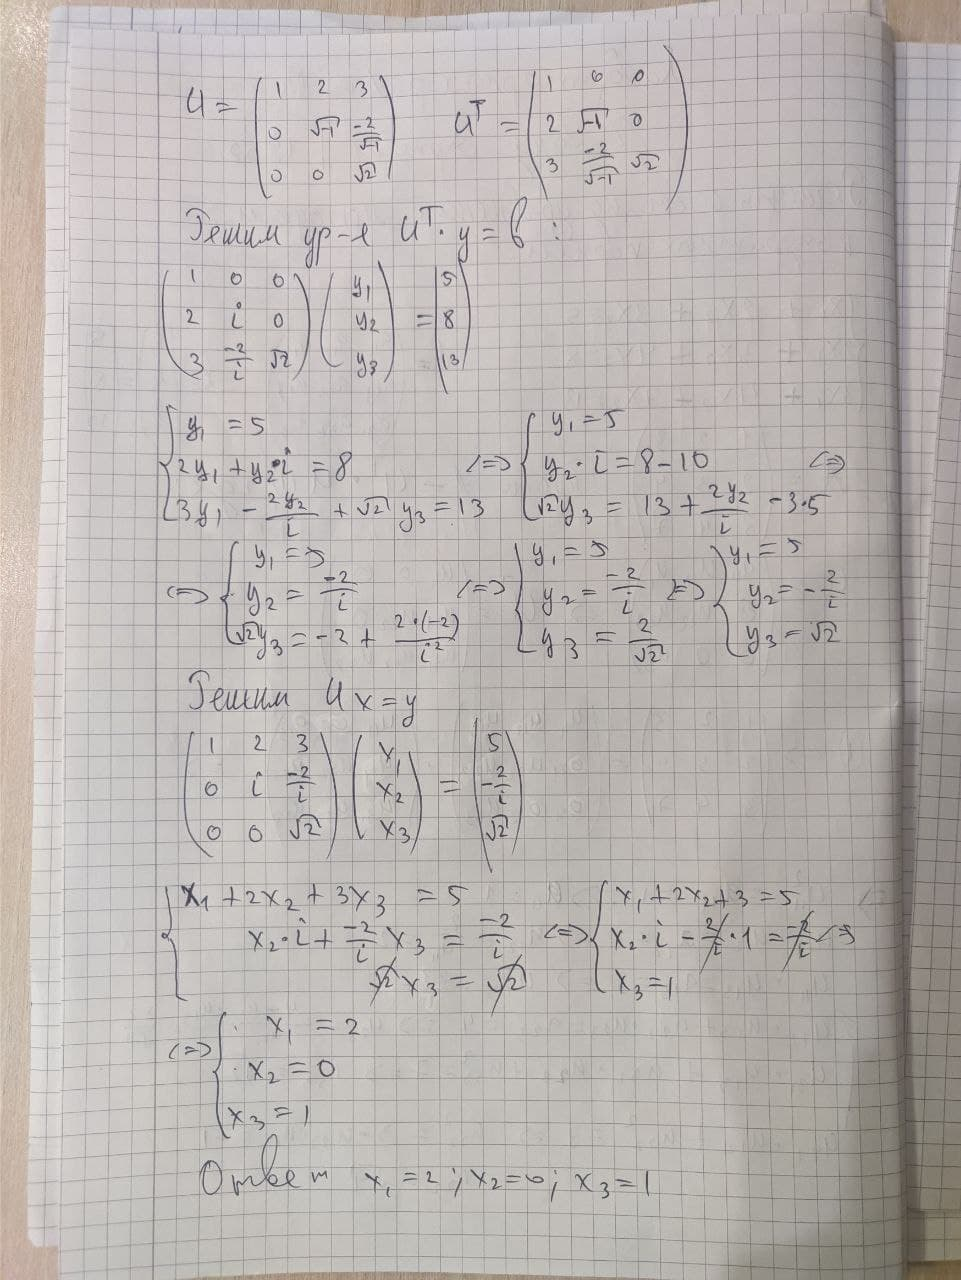 U = ( 1 2 3 ; 0 √-1 -2/√-1 ; 0 0 √2 )   Uᵀ = ( 1 0 0 ; 2 √-1 0 ; 3 -2/√-1 √2 )
Решим ур-я Uᵀ·y = b :
( 1 0 0 ; 2 i 0 ; 3 -2/i √2 ) ( y₁ ; y₂ ; y₃ ) = ( 5 ; 8 ; 13 )
{ y₁ = 5 ; 2y₁ + y₂·i = 8 ; 3y₁ - 2y₂/i + √2 y₃ = 13   <=> { y₁ = 5 ; y₂·i = 8-10 ; √2y₃ = 13 + 2y₂/i - 3·5   <=>
<=> { y₁ = 5 ; y₂ = -2/i ; √2y₃ = -2 + 2·(-2)/i²   <=> { y₁ = 5 ; y₂ = -2/i ; y₃ = 2/√2   <=> { y₁ = 5 ; y₂ = -2/i ; y₃ = √2
Решим Ux = y
( 1 2 3 ; 0 i -2/i ; 0 0 √2 ) ( x₁ ; x₂ ; x₃ ) = ( 5 ; -2/i ; √2 )
{ x₁ + 2x₂ + 3x₃ = 5 ; x₂·i + -2/i x₃ = -2/i ; √2 x₃ = √2   <=> { x₁ + 2x₂ + 3 = 5 ; x₂·i - 2/i·1 = -2/i ; x₃ = 1   <=>
<=> { x₁ = 2 ; x₂ = 0 ; x₃ = 1
Ответ x₁ = 2 ; x₂ = 0 ; x₃ = 1